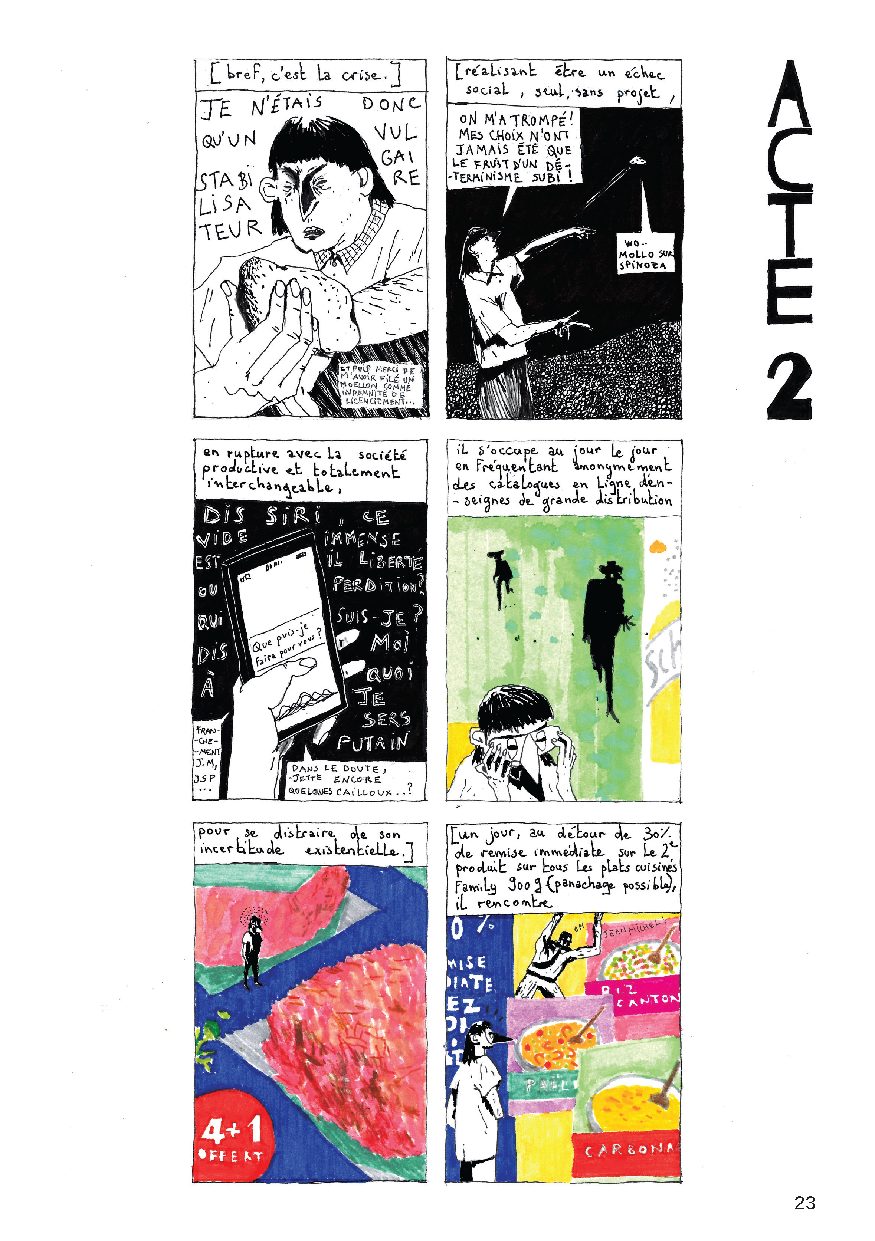 [bref, c'est la crise.]
JE N'ÉTAIS DONC
QU'UN VUL
GAI
STABI RE
LISA
TEUR
ET PUIS MERCI DE
M'AVOIR FILÉ UN
MOELLON COMME
INDEMNITÉ DE
LICENCIEMENT...
[réalisant être un échec
social, seul, sans projet,
ON M'A TROMPÉ!
MES CHOIX N'ONT
JAMAIS ÉTÉ QUE
LE FRUIT D'UN DÉ-
-TERMINISME SUBI !
WO..
MOLLO SUR
SPINOZA
ACTE 2
en rupture avec la société
productive et totalement
interchangeable,
DIS SIRI, CE
VIDE IMMENSE
EST IL LIBERTÉ
OU PERDITION?
QUI SUIS-JE?
DIS MOI
À QUOI
JE
SERS
PUTAIN
Que puis-je
faire pour vous ?
FRAN-
-CHE-
-MENT
J.M,
J.S.P
...
DANS LE DOUTE,
JETTE ENCORE
QUELQUES CAILLOUX...?
il s'occupe au jour le jour
en fréquentant anonymement
des catalogues en ligne d'en-
-seignes de grande distribution
Sch
pour se distraire de son
incertitude existentielle.]
4+1
OFFERT
[un jour, au détour de 30%
de remise immédiate sur le 2e
produit sur tous les plats cuisinés
Family 900g (panachage possible),
il rencontre
0 %
MISE
DIATE
EZ
OH
JEAN MICHEL!
RIZ
CANTON
PAËL
CARBONA
23